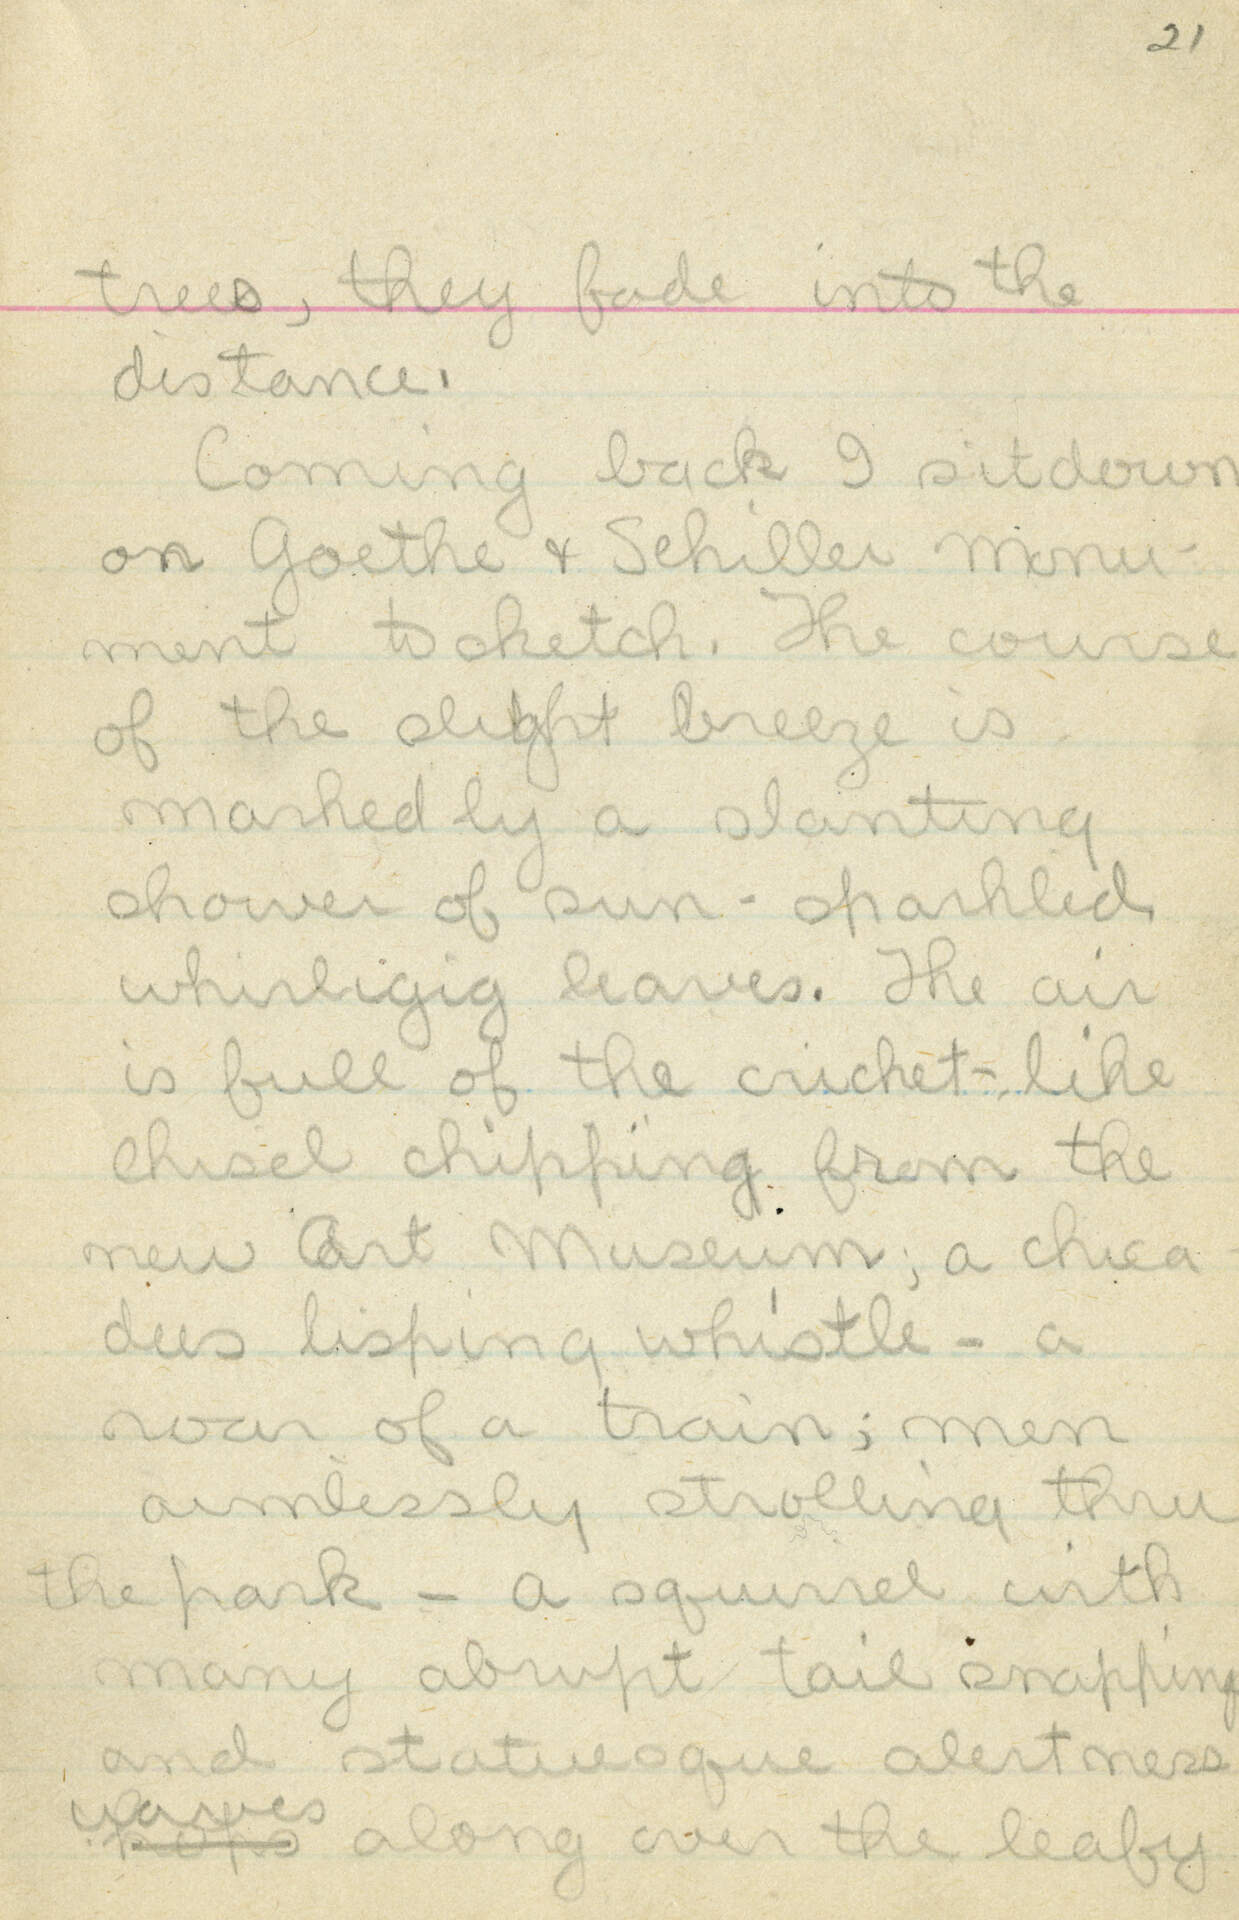 21
trees, they fade into the
distance.
Coming back I sit down
on Goethe & Schiller Monu-
ment to sketch. The course
of the slight breeze is
marked by a slanting
shower of sun-sparkled
whirligig leaves. The air
is full of the cricket-like
chisel chipping from the
new Art Museum; a chica-
dees lisping whistle - a
roar of a train; men
aimlessly strolling thru
the park - a squirrel with
many abrupt tail snapping
and statuesque alertness
waves
hops along over the leafy